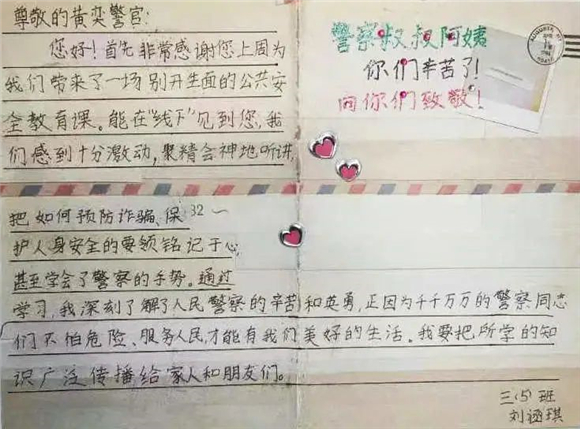 尊敬的黄奕警官:
您好!首先非常感谢您上周为
我们带来了一场别开生面的公共安
全教育课。能在“线下”见到您,我
们感到十分激动,聚精会神地听讲,
警察叔叔阿姨
你们辛苦了!
向你们致敬!
把如何预防诈骗、保
护人身安全的要领铭记于心,
甚至学会了警察的手势。通过
学习,我深刻了解了人民警察的辛苦和英勇,正因为千千万万的警察同志
们不怕危险、服务人民,才能有我们美好的生活。我要把所学的知
识广泛传播给家人和朋友们。
三(5)班
刘涵琪